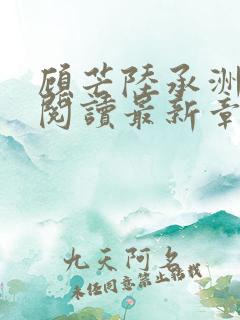 顾芒陸承洲
閱讀最新章
九天阿名
未经同意禁止转载